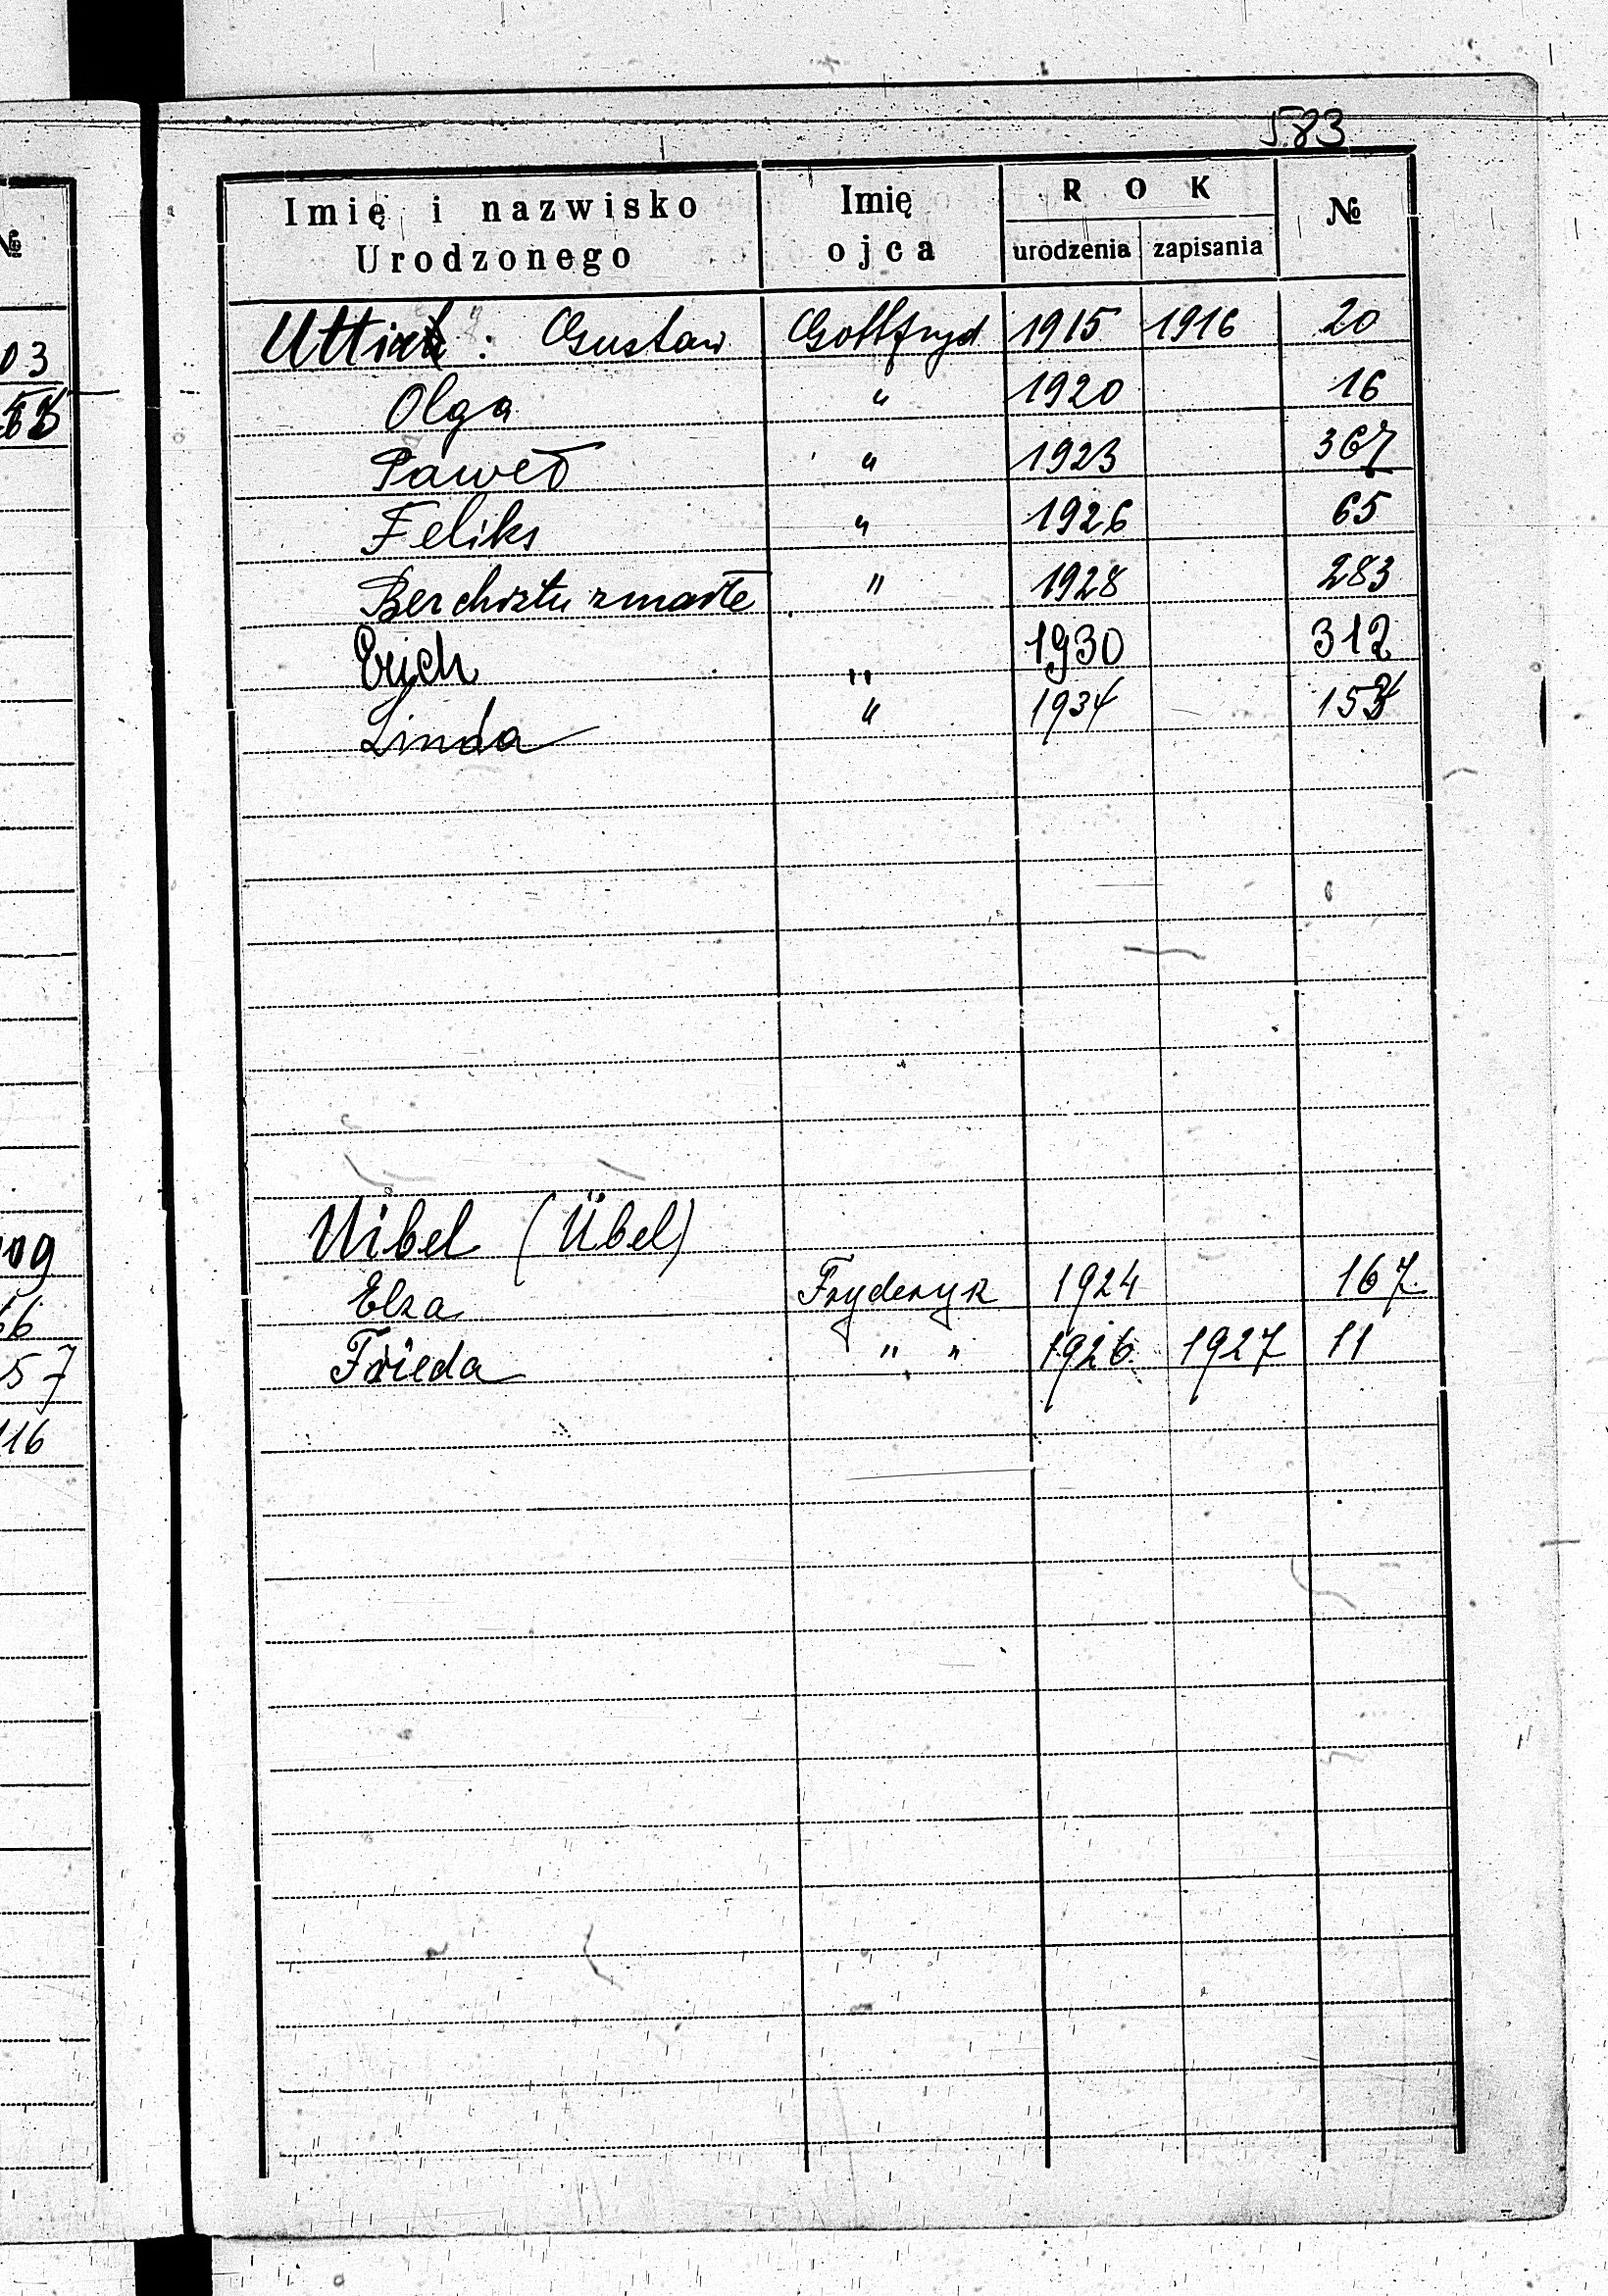 583
Imię i nazwisko Urodzonego Imię ojca R O K urodzenia zapisania №
: Gustaw Gottfryd 1915 1916 20
Olga " 1920 16
Paweł " 1923 367
Feliks " 1926 65
Bez chrztu zmarłe " 1928 283
Erich " 1930 312
Linda " 1934
Uibel (Übel)
Elza Fryderyk 1924 167
Frieda " " 1926 1927 11
№
03
09
66
57
116